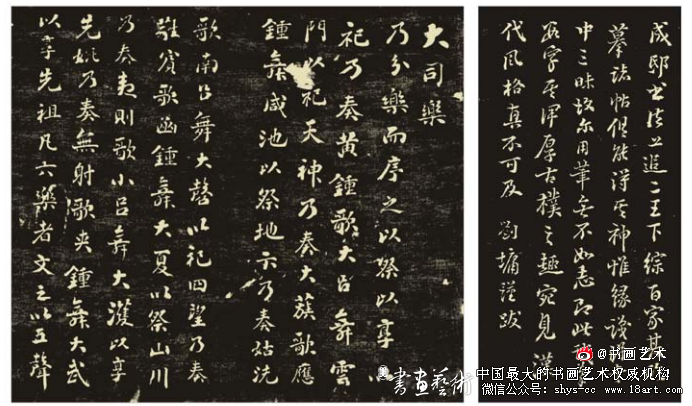 大司樂
乃分樂而序之以祭以享以
祀乃奏黃鍾歌大呂舞雲
門以祀天神乃奏大蔟歌應
鍾舞咸池以祭地示乃奏姑洗
歌南呂舞大磬以祀四望乃奏
蕤賓歌函鍾舞大夏以祭山川
乃奏夷則歌小呂舞大濩以享
先妣乃奏無射歌夾鍾舞大武
以享先祖凡六樂者文之以五聲
成邸書法上追二王下綜百家其臨
墓誌帖俱能得其神惟緣
中三昧故尔用筆無不如志即此
字其渾厚古樸之趣宛見漢
代風格真不可及 劉墉謹跋
@书画艺术
書畫藝術
中国最大的书画艺术权威机构
微信公众号：shys-cc www.18art.com